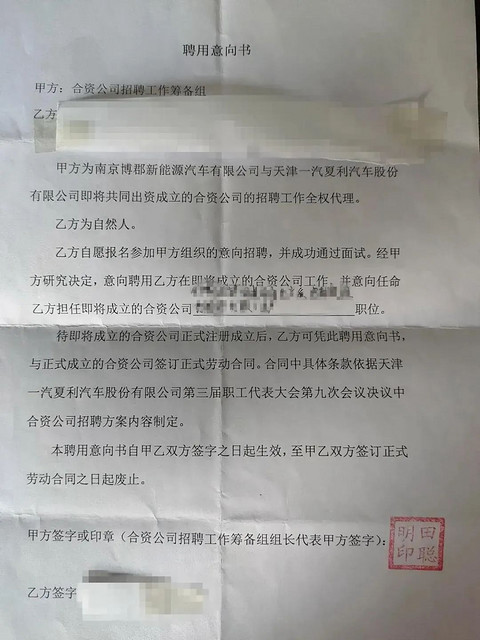 聘用意向书
甲方：合资公司招聘工作筹备组
乙方
甲方为南京博郡新能源汽车有限公司与天津一汽夏利汽车股份
有限公司即将共同出资成立的合资公司的招聘工作全权代理。
乙方为自然人。
乙方自愿报名参加甲方组织的意向招聘，并成功通过面试。经甲
方研究决定，意向聘用乙方在即将成立的合资公司工作，并意向任命
乙方担任即将成立的合资公司 职位。
待即将成立的合资公司正式注册成立后，乙方可凭此聘用意向书，
与正式成立的合资公司签订正式劳动合同。合同中具体条款依据天津
一汽夏利汽车股份有限公司第三届职工代表大会第九次会议决议中
合资公司招聘方案内容制定。
本聘用意向书自甲乙双方签字之日起生效，至甲乙双方签订正式
劳动合同之日起废止。
甲方签字或印章（合资公司招聘工作筹备组组长代表甲方签字）：
田聪明印
乙方签字